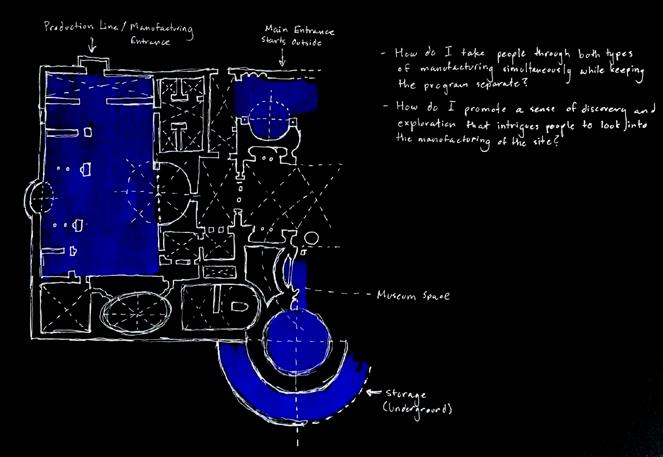 Production Line / Manufacturing
Entrance
Main Entrance
Starts Outside
- How do I take people through both types
of manufacturing simultaneously while keeping
the program separate?
- How do I promote a sense of discovery and
exploration that intrigues people to look into
the manufacturing of the site?
Museum Space
Storage
(Underground)